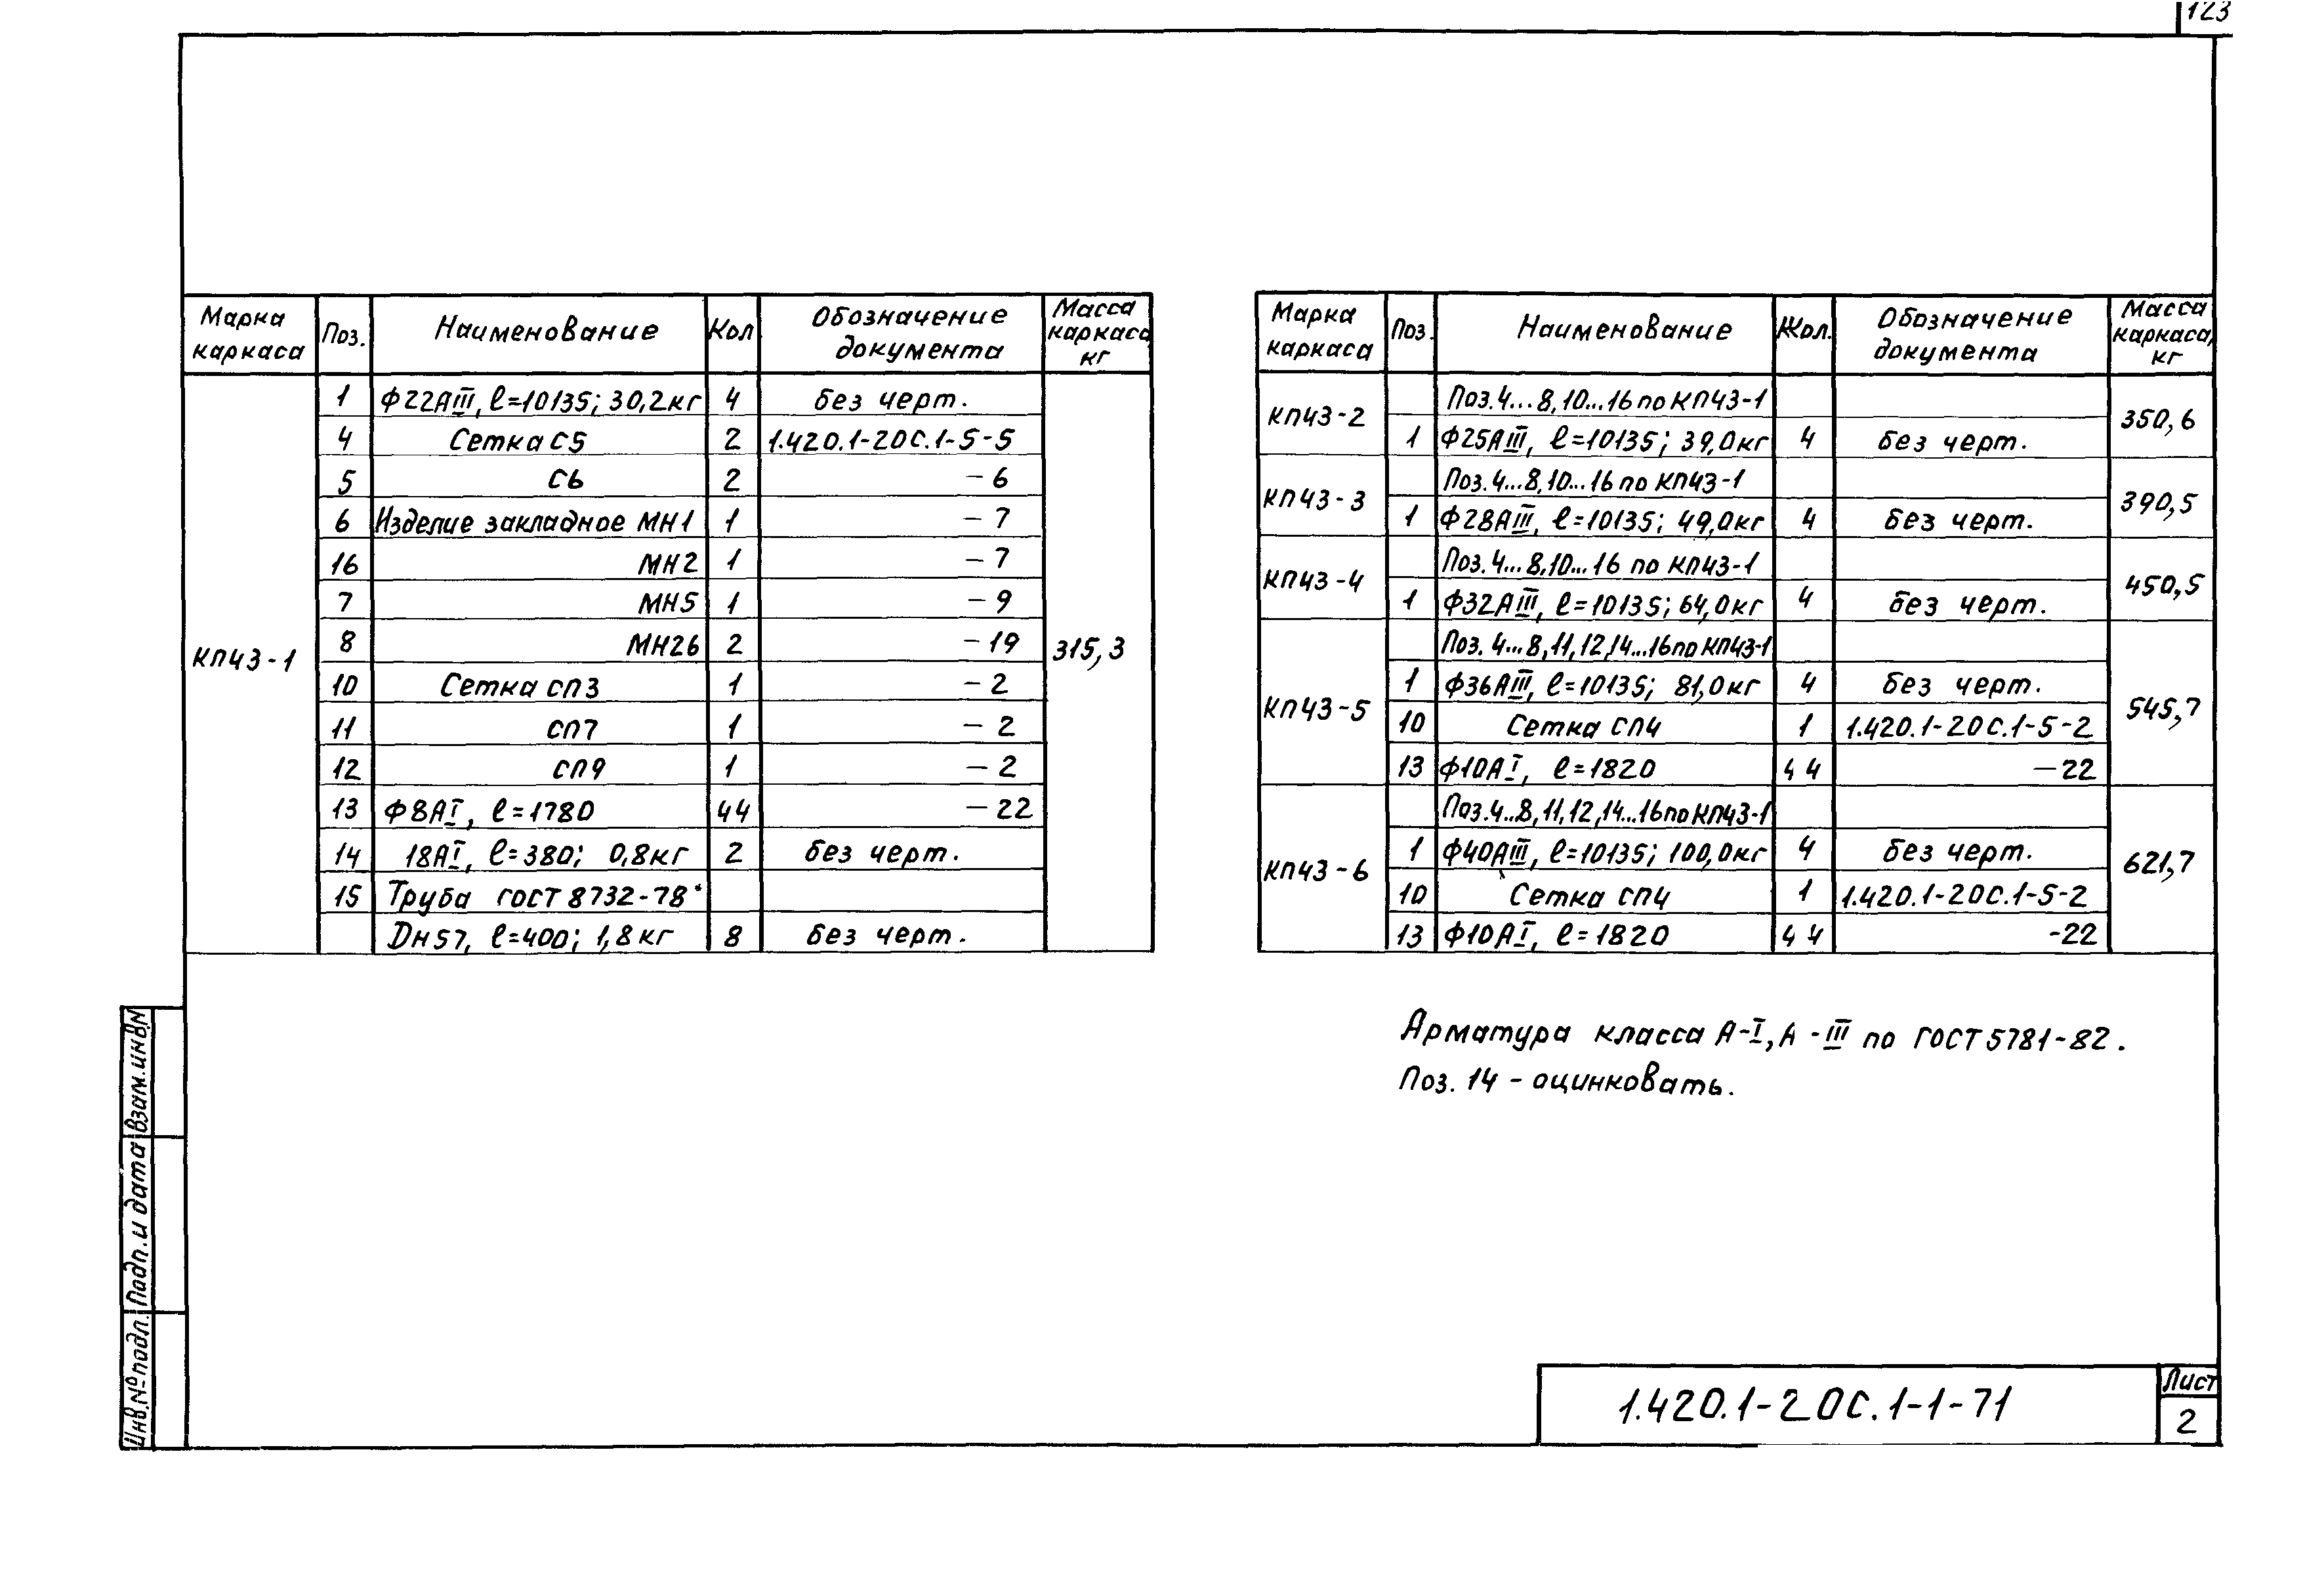 123
Марка каркаса Поз. Наименование Кол Обозначение документа Масса каркаса, кг
КП43-1 315,3
1 Ф22АIII, ℓ=10135; 30,2кг 4 без черт.
4 Сетка С5 2 1.420.1-20С.1-5-5
5 С6 2 -6
6 Изделие закладное МН1 1 -7
16 МН2 1 -7
7 МН5 1 -9
8 МН26 2 -19
10 Сетка СП3 1 -2
11 СП7 1 -2
12 СП9 1 -2
13 Ф8АI, ℓ=1780 44 -22
14 18АI, ℓ=380; 0,8кг 2 без черт.
15 Труба ГОСТ 8732-78*
Dн57, ℓ=400; 1,8кг 8 без черт.
Марка каркаса Поз. Наименование Кол. Обозначение документа Масса каркаса, кг
КП43-2 350,6
Поз.4...8,10...16 по КП43-1
1 Ф25АIII, ℓ=10135; 39,0кг 4 без черт.
КП43-3 390,5
Поз.4...8,10...16 по КП43-1
1 Ф28АIII, ℓ=10135; 49,0кг 4 без черт.
КП43-4 450,5
Поз.4...8,10...16 по КП43-1
1 Ф32АIII, ℓ=10135; 64,0кг 4 без черт.
КП43-5 545,7
Поз. 4...8,11,12,14...16 по КП43-1
1 Ф36АIII, ℓ=10135; 81,0кг 4 без черт.
10 Сетка СП4 1 1.420.1-20С.1-5-2
13 Ф10АI, ℓ=1820 44 -22
КП43-6 621,7
Поз.4...8,11,12,14...16 по КП43-1
1 Ф40АIII, ℓ=10135; 100,0кг 4 без черт.
10 Сетка СП4 1 1.420.1-20С.1-5-2
13 Ф10АI, ℓ=1820 44 -22
Арматура класса А-I, А-III по ГОСТ 5781-82.
Поз. 14 - оцинковать.
Инв.№подл. Подп. и дата Взам.инв№
1.420.1-20С.1-1-71
Лист
2